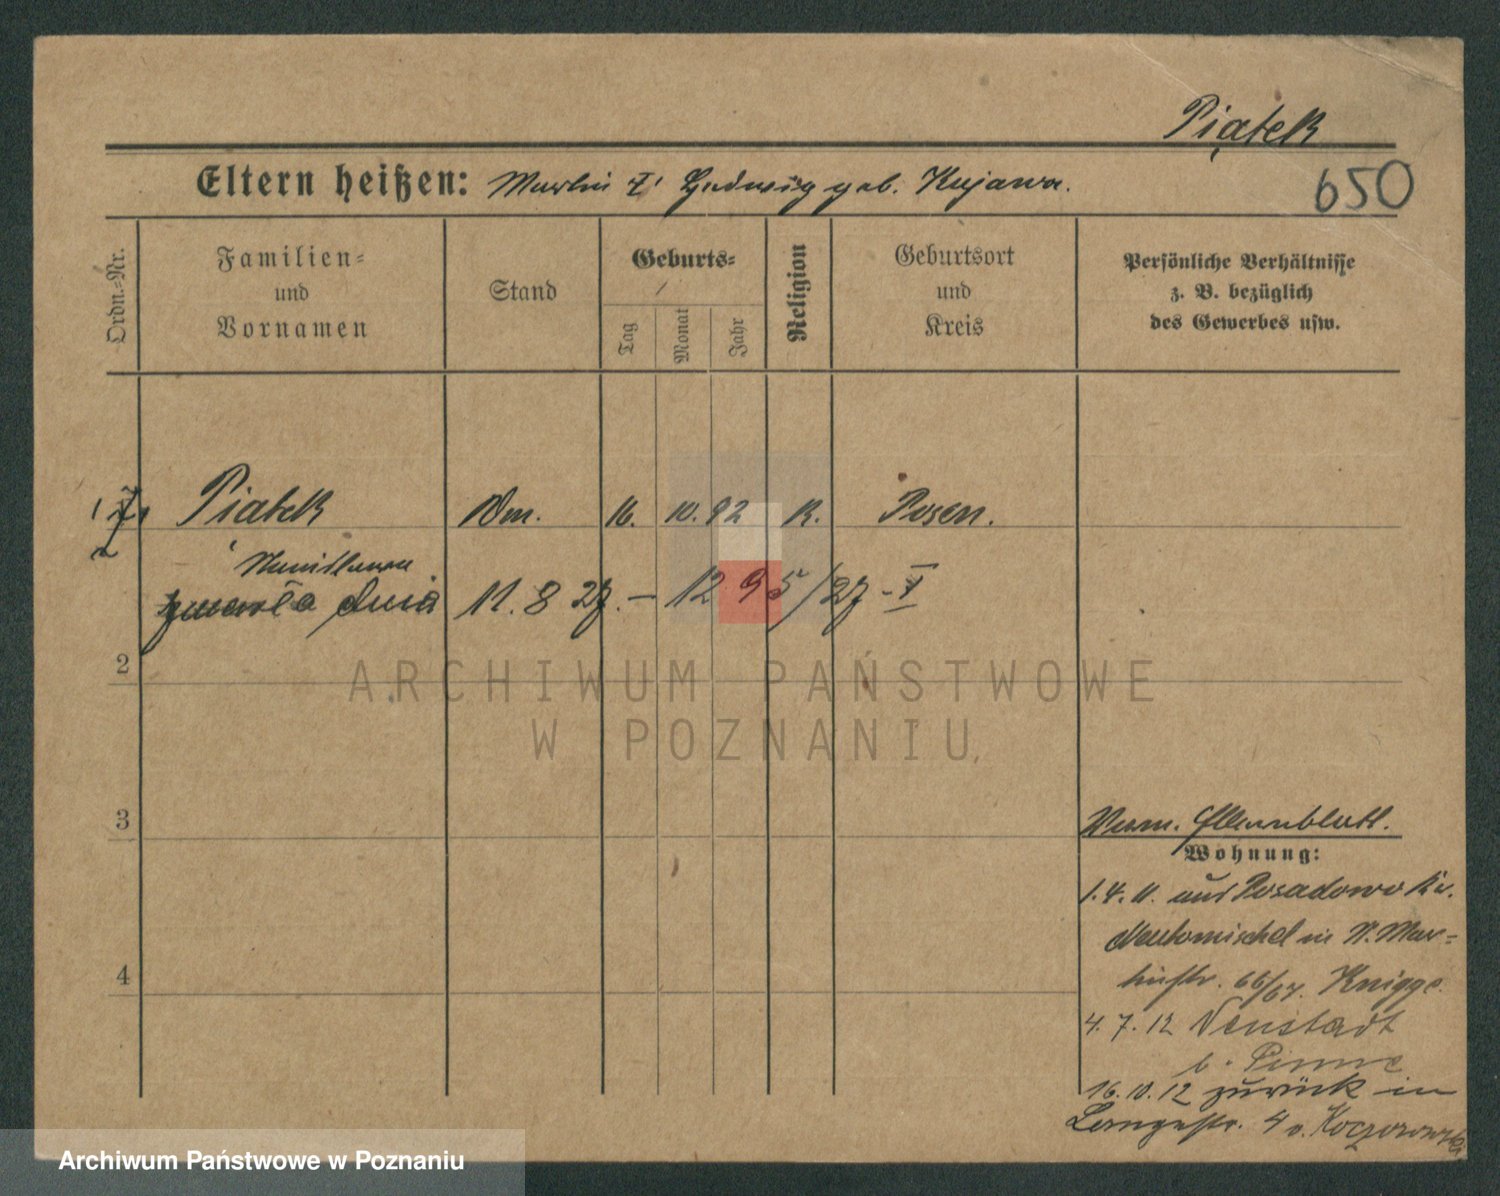 Piątek
Eltern heißen: Martin † Hedwig geb. Kujawa.
650
Ordn.-Nr.
Familien-
und
Vornamen
Stand
Geburts-
Tag
Monat
Jahr
Religion
Geburtsort
und
Kreis
Persönliche Verhältnisse
z. B. bezüglich
des Gewerbes usw.
1 Piątek 16. 10. 92 K. Posen.
Stanislawa
zmarła dnia 11. 8 27. — 1295/27 - V
2
3
4
Verm. Elternblatt.
Wohnung:
1.4.11. aus Posadowo Kr.
Neutomischel in St. Mar-
tinstr. 66/67. Knigge.
4.7.12 Neustadt
b. Pinne
16.10.12 zurück in
Langestr. 4 b. Koczorowski
ARCHIWUM PAŃSTWOWE
W POZNANIU
Archiwum Państwowe w Poznaniu